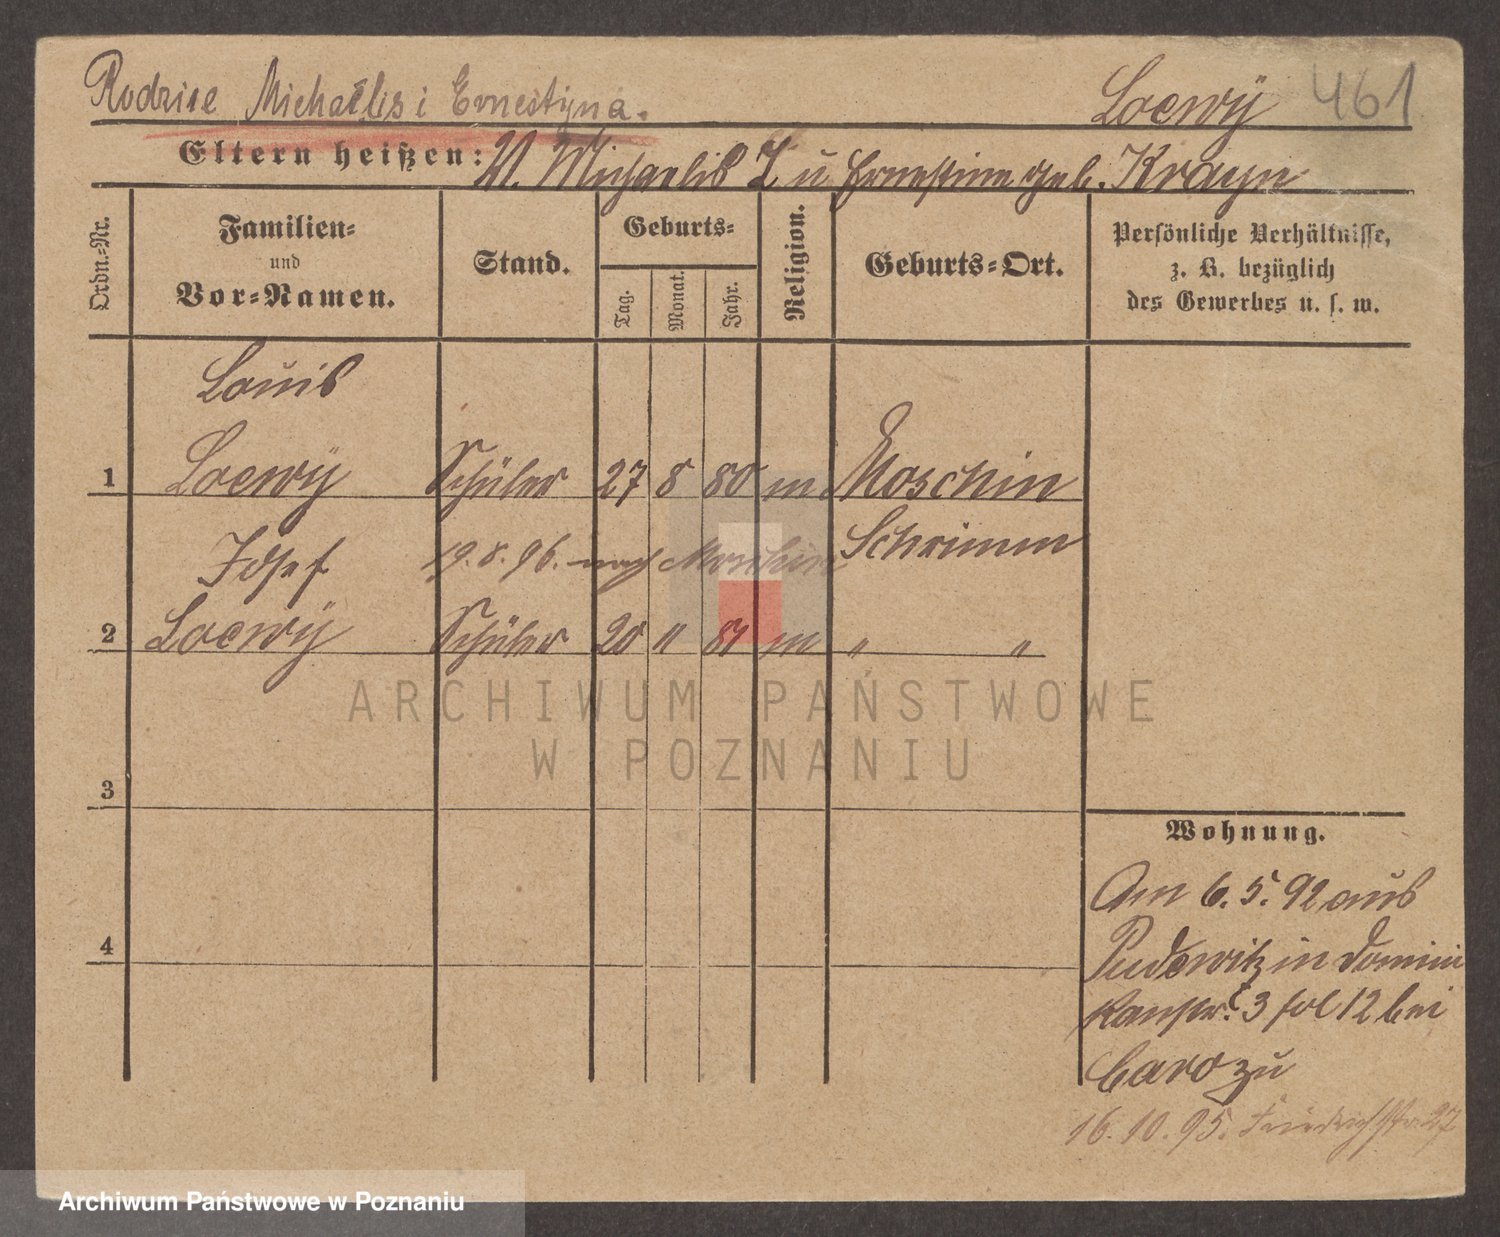 Rodzice Michaëlis i Ernestyna.
Loewÿ 461
Eltern heißen: V. Michaelis L u Ernestine geb. Krayn
Ordn.-Nr.
Familien-
und
Vor-Namen.
Stand.
Geburts-
Tag.
Monat.
Jahr.
Religion.
Geburts-Ort.
Persönliche Verhältnisse,
z. B. bezüglich
des Gewerbes u. s. w.
Louis
1 Loewÿ Schüler 27 8 80 m Moschin
Schrimm
Josef 19.8.96. nach Moschin
2 Loewÿ Schüler 20 " 81 m " "
ARCHIWUM PAŃSTWOWE
W POZNANIU
3
Wohnung.
Am 6.5.92 aus
Pudewitz in Domini
4
kanstr. 3 fol 12 bei
Caro zu
16.10.95. Friedrichstr. 27
Archiwum Państwowe w Poznaniu